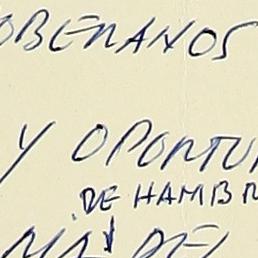 OBERANOS
Y OPORTU
DE HAMBR